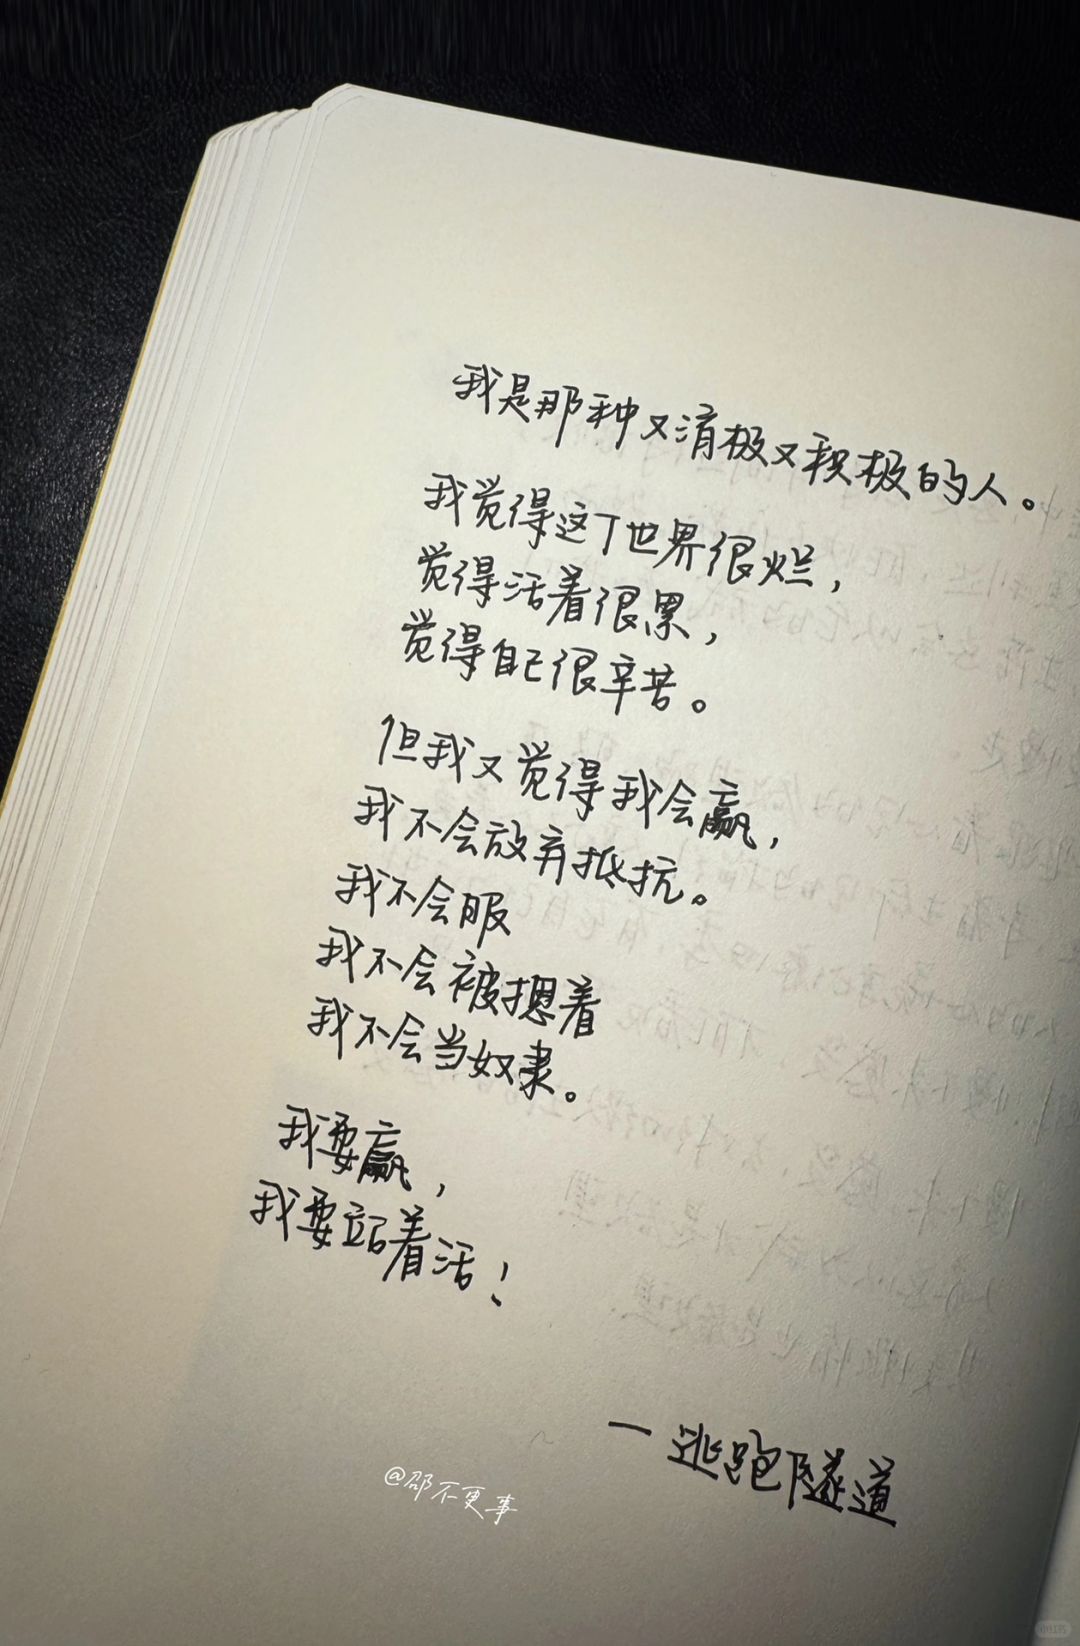 我是那种又消极又积极的人。
我觉得这个世界很烂，
觉得活着很累，
觉得自己很辛苦。
但我又觉得我会赢，
我不会放弃抵抗。
我不会服
我不会被摁着
我不会当奴隶。
我要赢，
我要站着活！
—逃跑隧道
@邵不更事
小红书